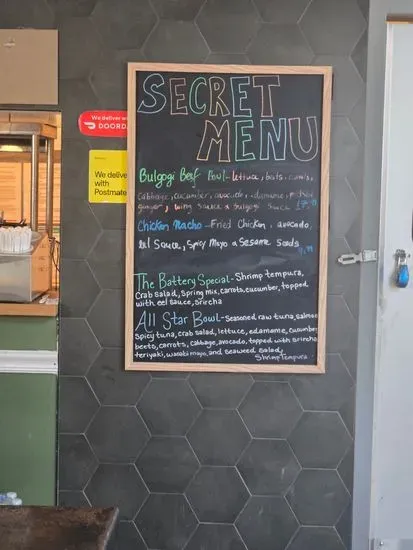 SECRET
MENU
Bulgogi Beef Bowl - lettuce, beets, carrots,
cabbage, cucumber, avocado, edamame, pickled
ginger, sauce & bulgogi sauce
Chicken Nacho - Fried Chicken, avocado,
eel Sauce, Spicy Mayo & Sesame Seeds
9.99
The Battery Special - Shrimp tempura,
Crab salad, Spring mix, carrots, cucumber, topped
with eel sauce, Sriracha
All Star Bowl - Seasoned, raw tuna, salmon
Spicy tuna, crab salad, lettuce, edamame, cucumber
beets, carrots, cabbage, avocado, topped with sriracha
teriyaki, wasabi mayo, and seaweed salad,
Shrimp Tempura
We deliver wi
DOORD
We delive
with
Postmate